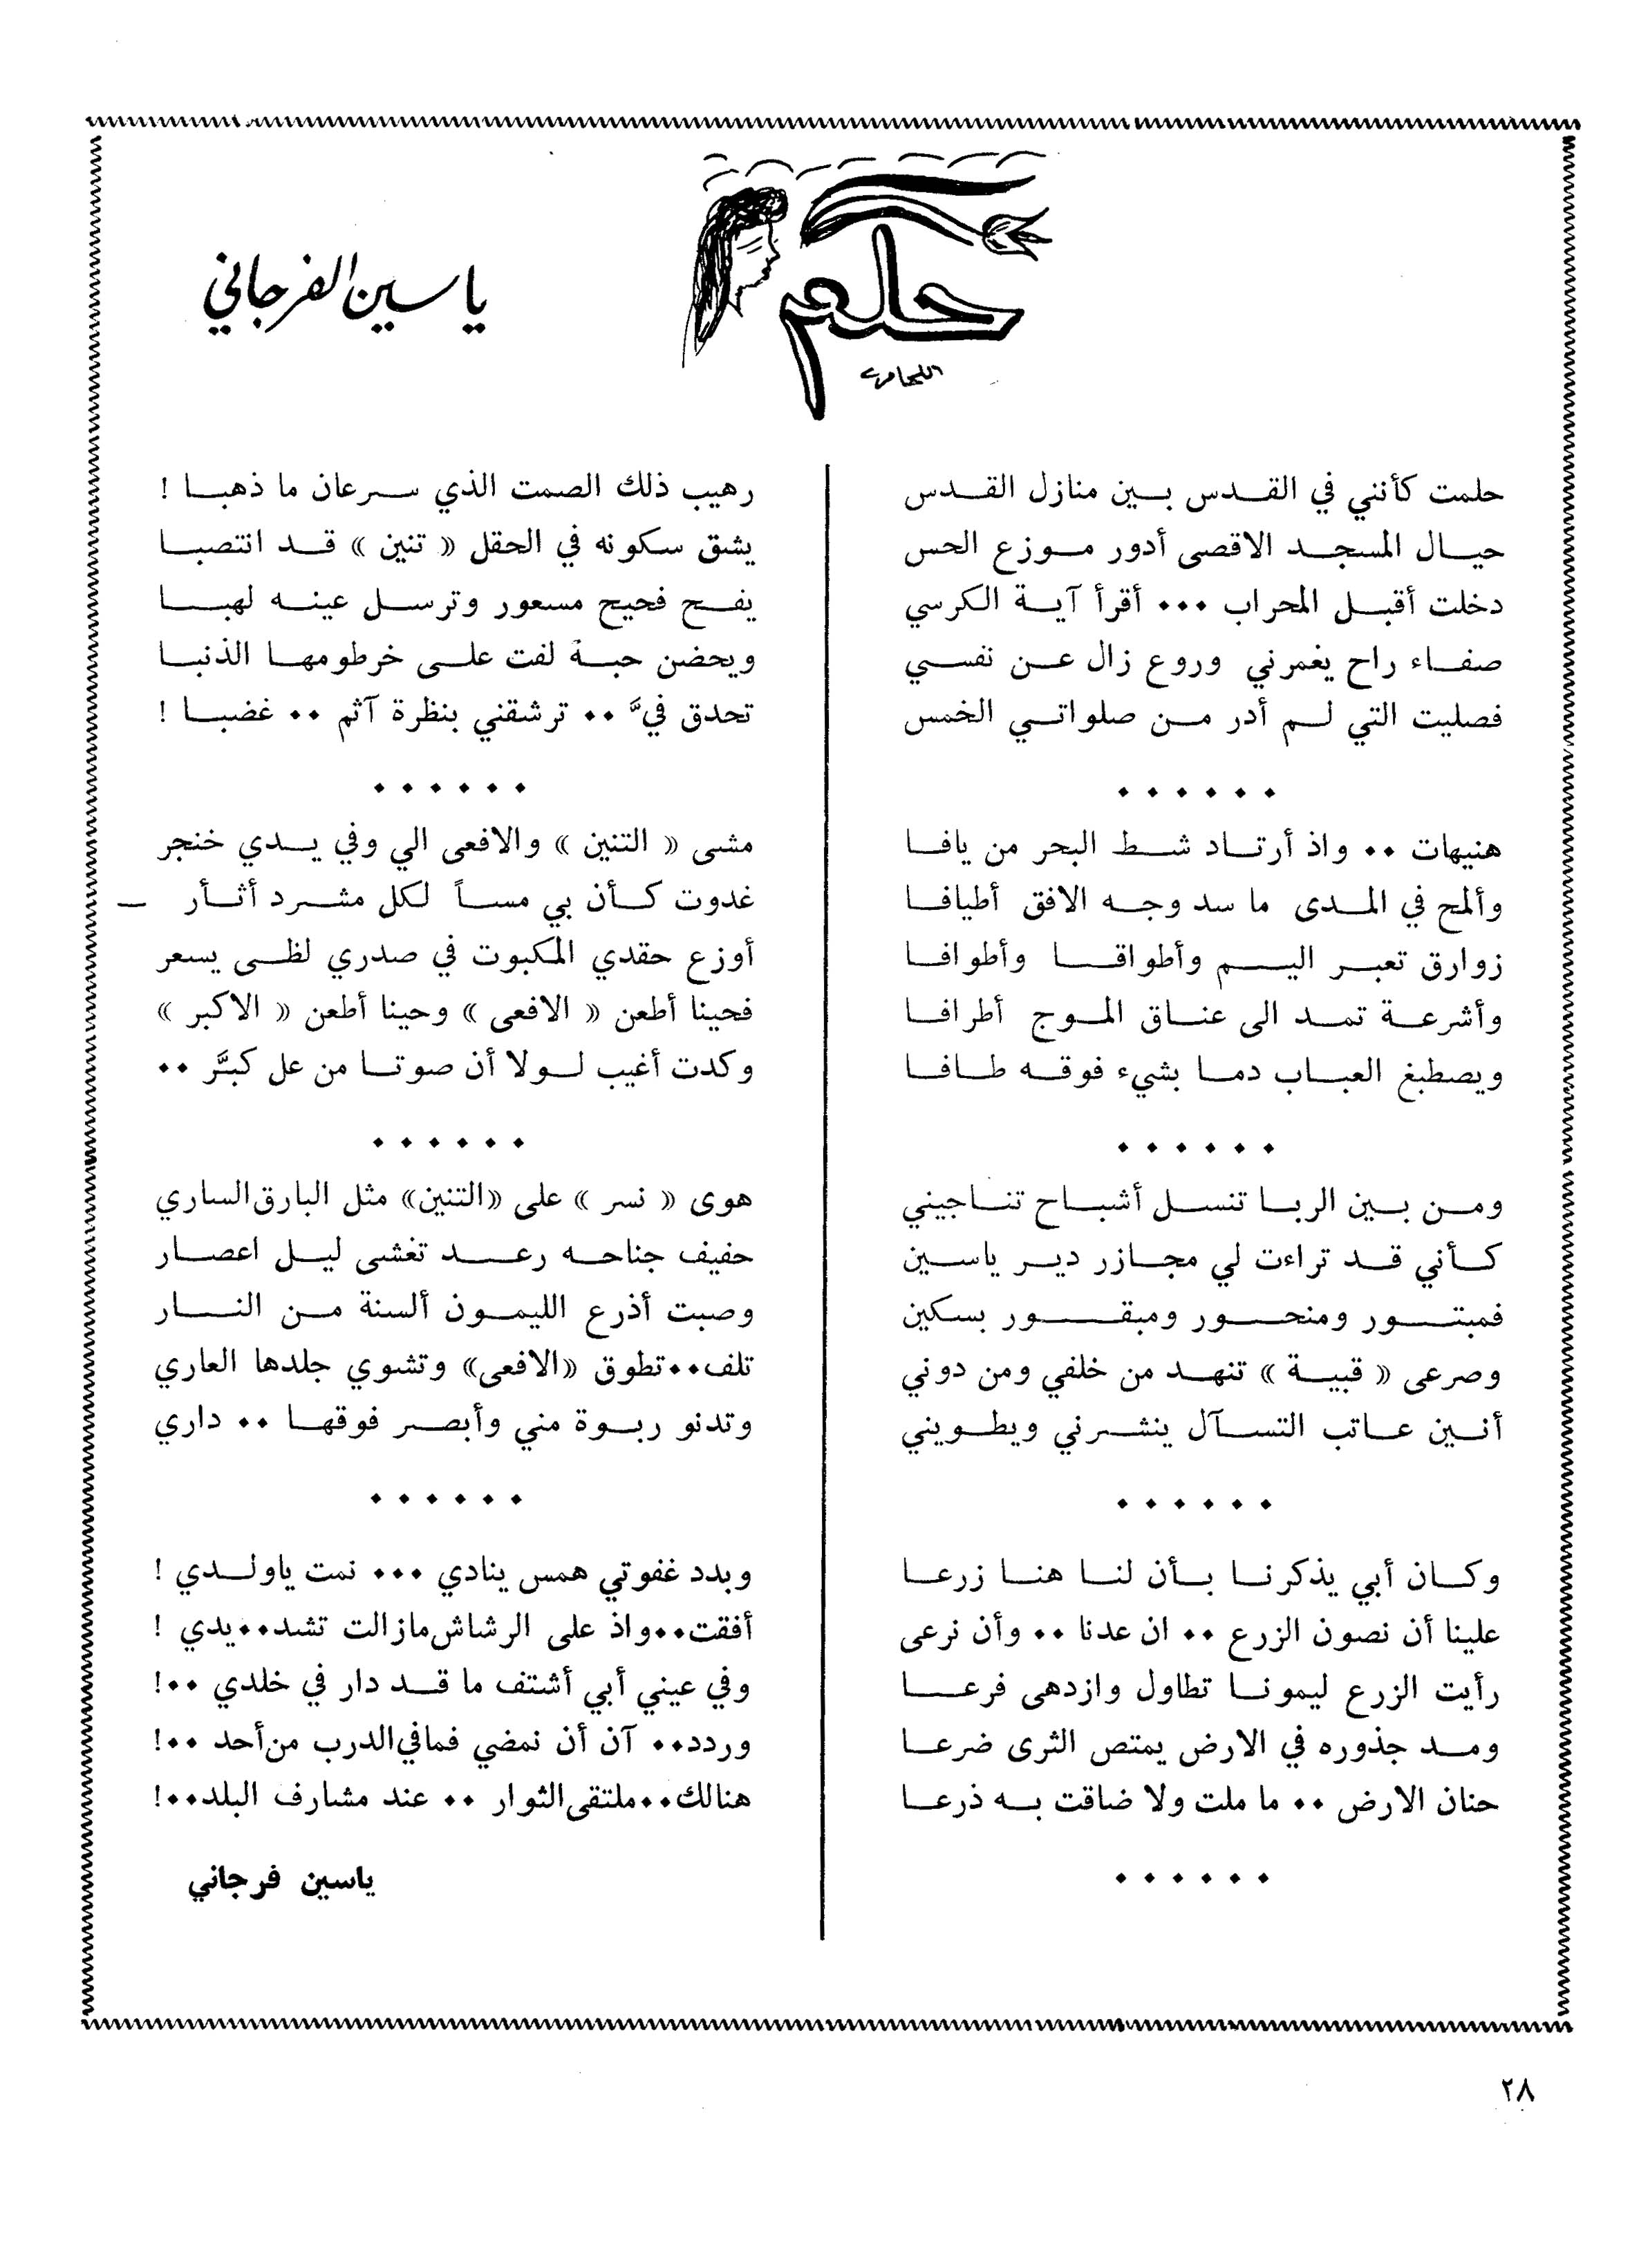 حلم
ياسين الفرجاني
حلمت كأنني في القدس بين منازل القدس
حيال المسجد الاقصى أدور موزع الحس
دخلت أقبل المحراب ٠٠٠ أقرأ آية الكرسي
صفاء راح يغمرني وروع زال عن نفسي
فصليت التي لم أدر من صلواتي الخمس
٠٠٠٠٠٠
هنيهات ٠٠ واذ أرتاد شط البحر من يافا
وألمح في المدى ما سد وجه الافق أطيافا
زوارق تعبر اليم وأطواقا وأطوافا
وأشرعة تمد الى عناق الموج أطرافا
ويصطبغ العباب دما بشيء فوقه طافا
٠٠٠٠٠٠
ومن بين الربا تنسل أشباح تناجيني
كأني قد تراءت لي مجازر دير ياسين
فمبتور ومنحور ومبقور بسكين
وصرعى « قبية » تنهد من خلفي ومن دوني
أنين عاتب التسآل ينشرني ويطويني
٠٠٠٠٠٠
وكان أبي يذكرنا بأن لنا هنا زرعا
علينا أن نصون الزرع ٠٠ ان عدنا ٠٠ وأن نرعى
رأيت الزرع ليمونا تطاول وازدهى فرعا
ومد جذوره في الارض يمتص الثرى ضرعا
حنان الارض ٠٠ ما ملت ولا ضاقت به ذرعا
٠٠٠٠٠٠
رهيب ذلك الصمت الذي سرعان ما ذهبا !
يشق سكونه في الحقل « تنين » قد انتصبا
يفح فحيح مسعور وترسل عينه لهبا
ويحضن حبة لفت على خرطومها الذنبا
تحدق فيَّ ٠٠ ترشقني بنظرة آثم ٠٠ غضبا !
٠٠٠٠٠٠
مشى « التنين » والافعى الي وفي يدي خنجر
غدوت كأن بي مساً لكل مشرد أثأر —
أوزع حقدي المكبوت في صدري لظى يسعر
فحينا أطعن « الافعى » وحينا أطعن « الاكبر »
وكدت أغيب لولا أن صوتا من عل كبَّر ٠٠
٠٠٠٠٠٠
هوى « نسر » على «التنين» مثل البارق الساري
حفيف جناحه رعد تغشى ليل اعصار
وصبت أذرع الليمون ألسنة من النار
تلف٠٠تطوق «الافعى» وتشوي جلدها العاري
وتدنو ربوة مني وأبصر فوقها ٠٠ داري
٠٠٠٠٠٠
وبدد غفوتي همس ينادي ٠٠٠ نمت ياولدي !
أفقت٠٠واذ على الرشاش مازالت تشد٠٠يدي !
وفي عيني أبي أشتف ما قد دار في خلدي ٠٠!
وردد٠٠ آن أن نمضي فمافي الدرب من أحد ٠٠!
هنالك٠٠ملتقى الثوار ٠٠ عند مشارف البلد٠٠!
ياسين فرجاني
٢٨